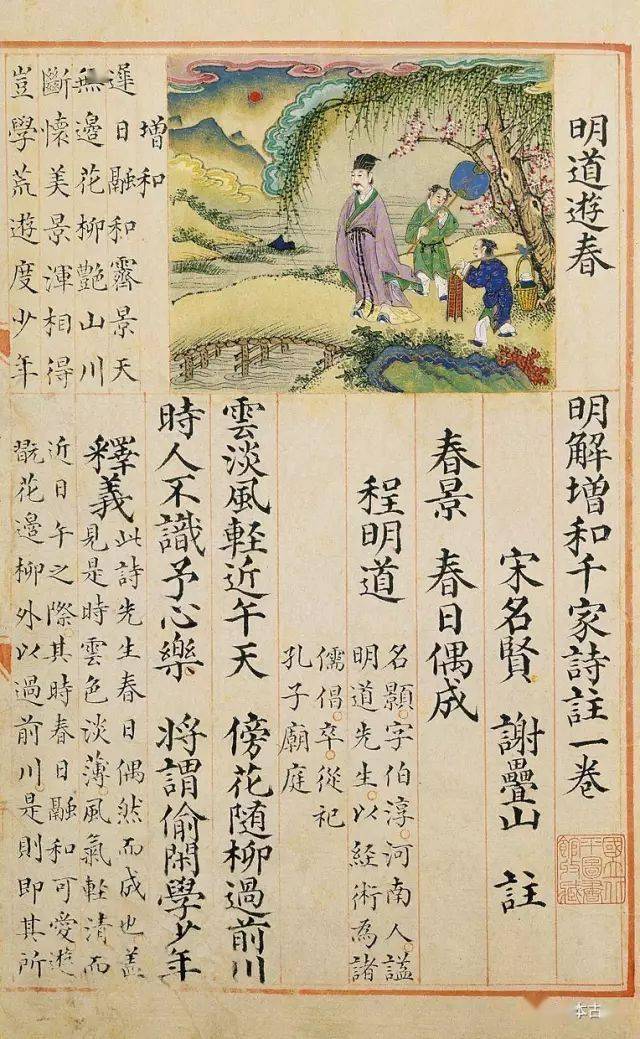 明道遊春
增和
遲日融和霽景天
無邊花柳艷山川
斷懷美景渾相得
豈學荒遊度少年
明解增和千家詩註一卷
國立北
平圖書
館收藏
宋名賢 謝疊山 註
春景 春日偶成
程明道
名顥。字伯淳。河南人。謚
明道先生。以経術為諸
儒倡。卒。從祀
孔子廟庭
雲淡風軽近午天 傍花随柳過前川
時人不識予心樂 將謂偷閑學少年
釋義 此詩先生春日偶然而成也盖
見是時雲色淡薄風氣軽清而
近日午之際。其時春日融和可愛遊
翫花邊柳外以過前川。是則即其所
本古